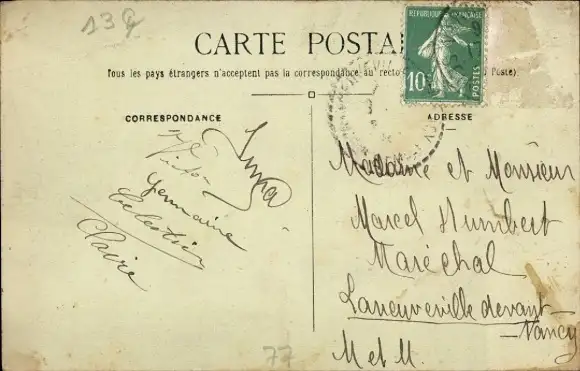 139
REPUBLIQUE FRANÇAISE
10c
POSTES
CARTE POSTA
Tous les pays étrangers n'acceptent pas la correspondance au recto
Poste).
CORRESPONDANCE
ADRESSE
Germaine
Célestin
Claire
Madame et Monsieur
Marcel Humbert
Maréchal
Laneuveville devant
Nancy
M et M.
77